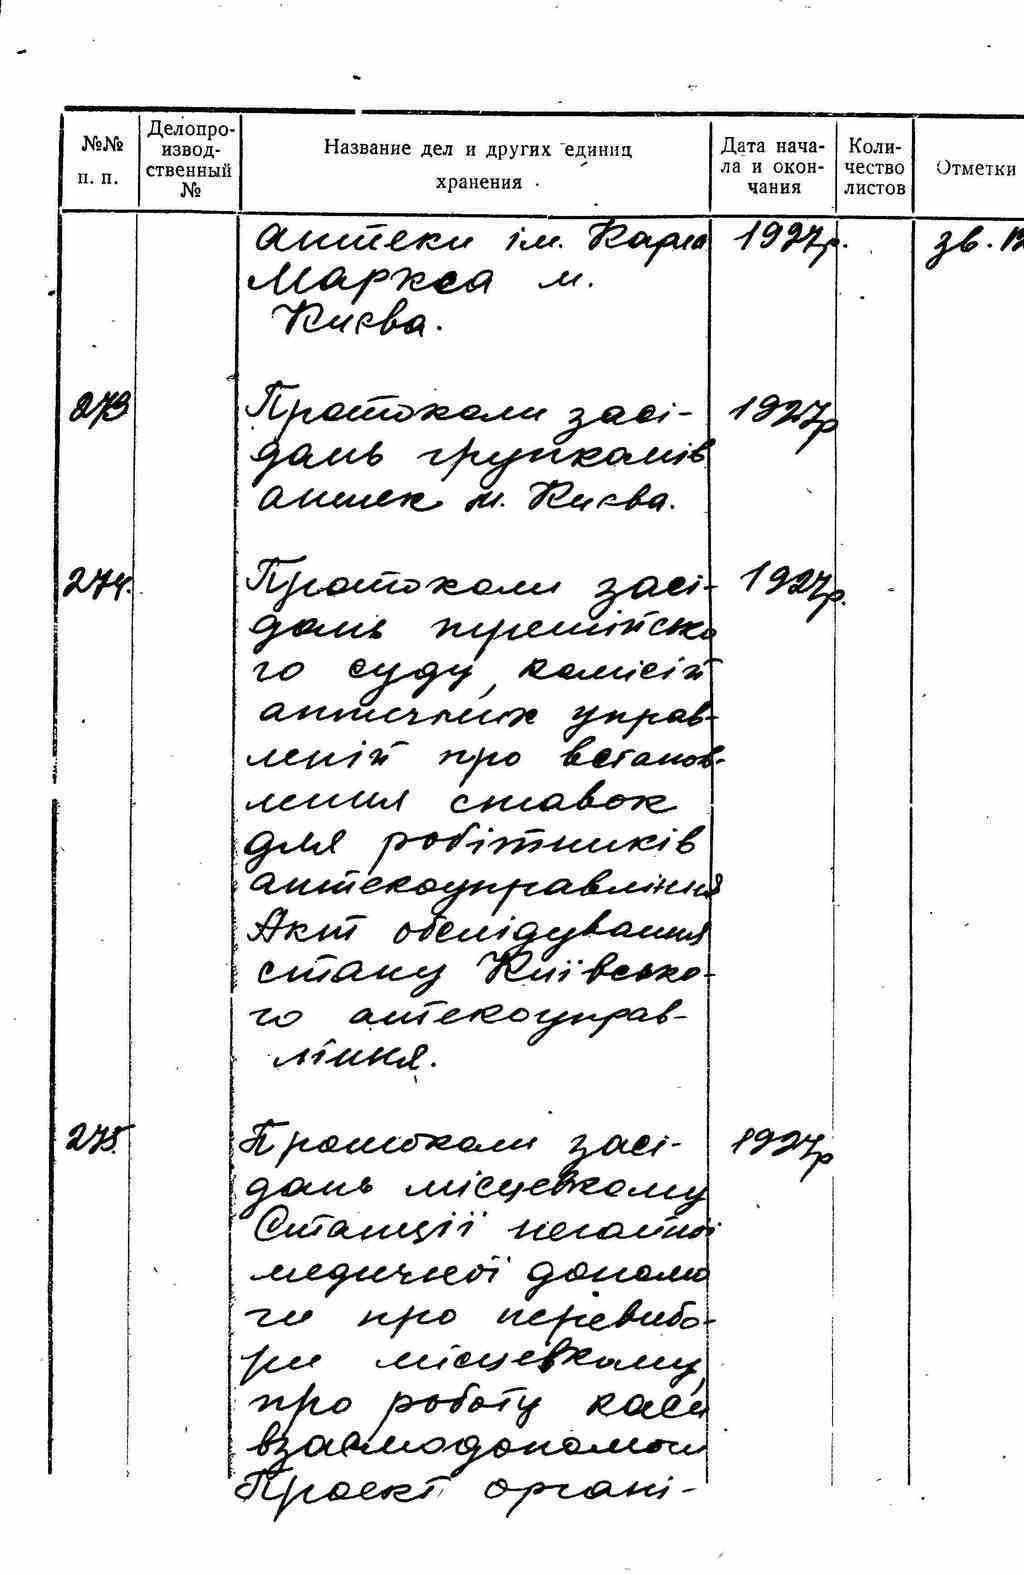 №№ п. п.
Делопро-
извод-
ственный
№
Название дел и других единиц
хранения
Дата нача-
ла и окон-
чания
Коли-
чество
листов
Отметки
аптеки ім. Карла 1927р. зв.
Маркса м.
Києва.
273 Протоколи засі- 1927р
дань групкомів
аптек м. Києва.
274. Протоколи засі- 1927р.
дань
го суду, комісій
аптечних управ-
ліній про встанов-
лення ставок
для робітників
аптекоуправління
Акт обслідування
стану Київсько-
го аптекоуправ-
ління.
275. Протоколи засі- 1927р
дань місцевкому
Станції негайної
медичної допомо
ги про перевибо-
ри місцевкому,
про роботу каси
взаємодопомоги
Проект органі-